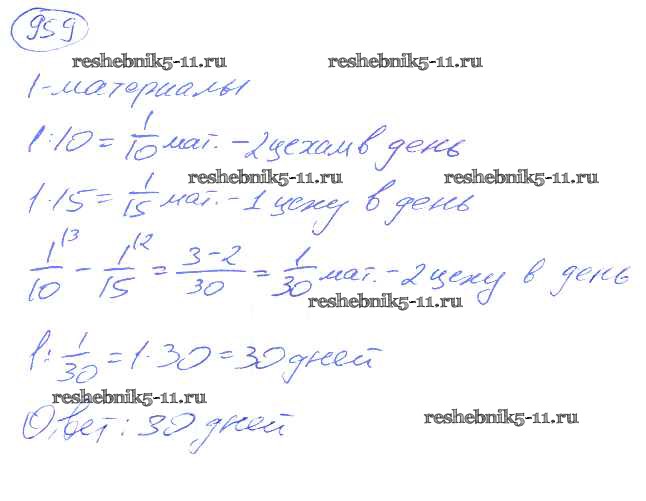 959
reshebnik5-11.ru reshebnik5-11.ru
1-материалы
1:10 = 1/10 мат. - 2 цехам в день
reshebnik5-11.ru reshebnik5-11.ru
1:15 = 1/15 мат. - 1 цеху в день
1/10 \3 - 1/15 \2 = 3-2/30 = 1/30 мат. - 2 цеху в день
reshebnik5-11.ru
1: 1/30 = 1·30 = 30 дней
reshebnik5-11.ru
Ответ: 30 дней
reshebnik5-11.ru